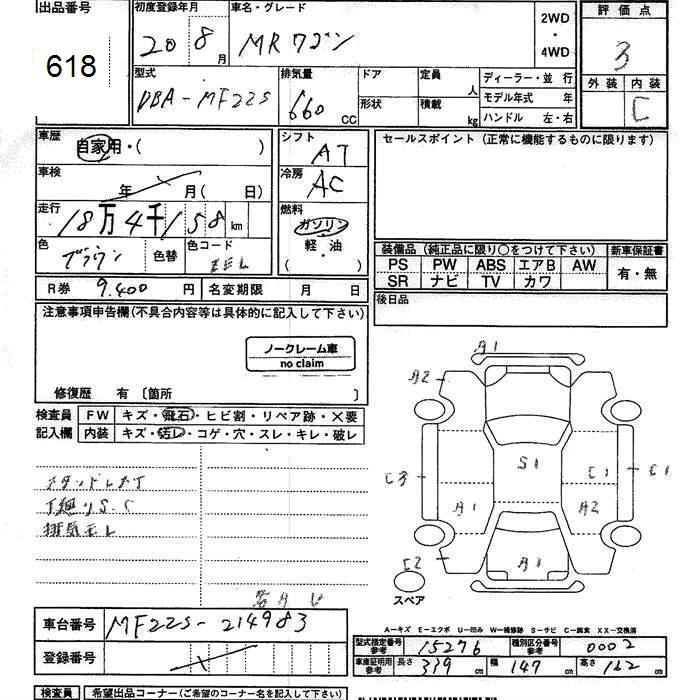 出品番号
618
初度登録年月
20 8月
車名・グレード
MRワゴン
2WD
・
4WD
評価点
3
外装 内装
C
型式
DBA-MF22S
排気量
660 CC
ドア
形状
定員 人
積載 kg
ディーラー・並行
モデル年式 年
ハンドル 左・右
車歴
自家用・( )
車検
年 月(日)
走行
18万4千158km
色
ブラウン
色替
色コード
シフト
AT
冷房
AC
燃料
ガソリン
・
軽・油
( )
セールスポイント(正常に機能するものに限ります)
装備品(純正品に限り○をつけて下さい)
PS PW ABS エアB AW
SR ナビ TV カワ
新車保証書
有・無
後日品
R券 9.400円
名変期限 月 日
注意事項申告欄(不具合内容等は具体的に記入して下さい)
ノークレーム車
no claim
修復歴 有〔箇所 〕
検査員
記入欄
FW キズ・飛石・ヒビ割・リペア跡・X要
内装 キズ・汚レ・コゲ・穴・スレ・キレ・破レ
下廻りS.C
排気モレ
A1
A2
S1
C3
C1
C1
A1
A2
C2
A1
スペア
A-キズ E-エクボ U-凹み W-補修跡 S-サビ C-腐食 XX-交換済
車台番号 MF22S-214983
登録番号
型式指定番号
参考
15276
種別区分番号
参考
0002
車庫証明用
参考
長さ 339cm 幅 147cm 高さ 162cm
検査員
希望出品コーナー(ご希望のコーナー名を記入して下さい)